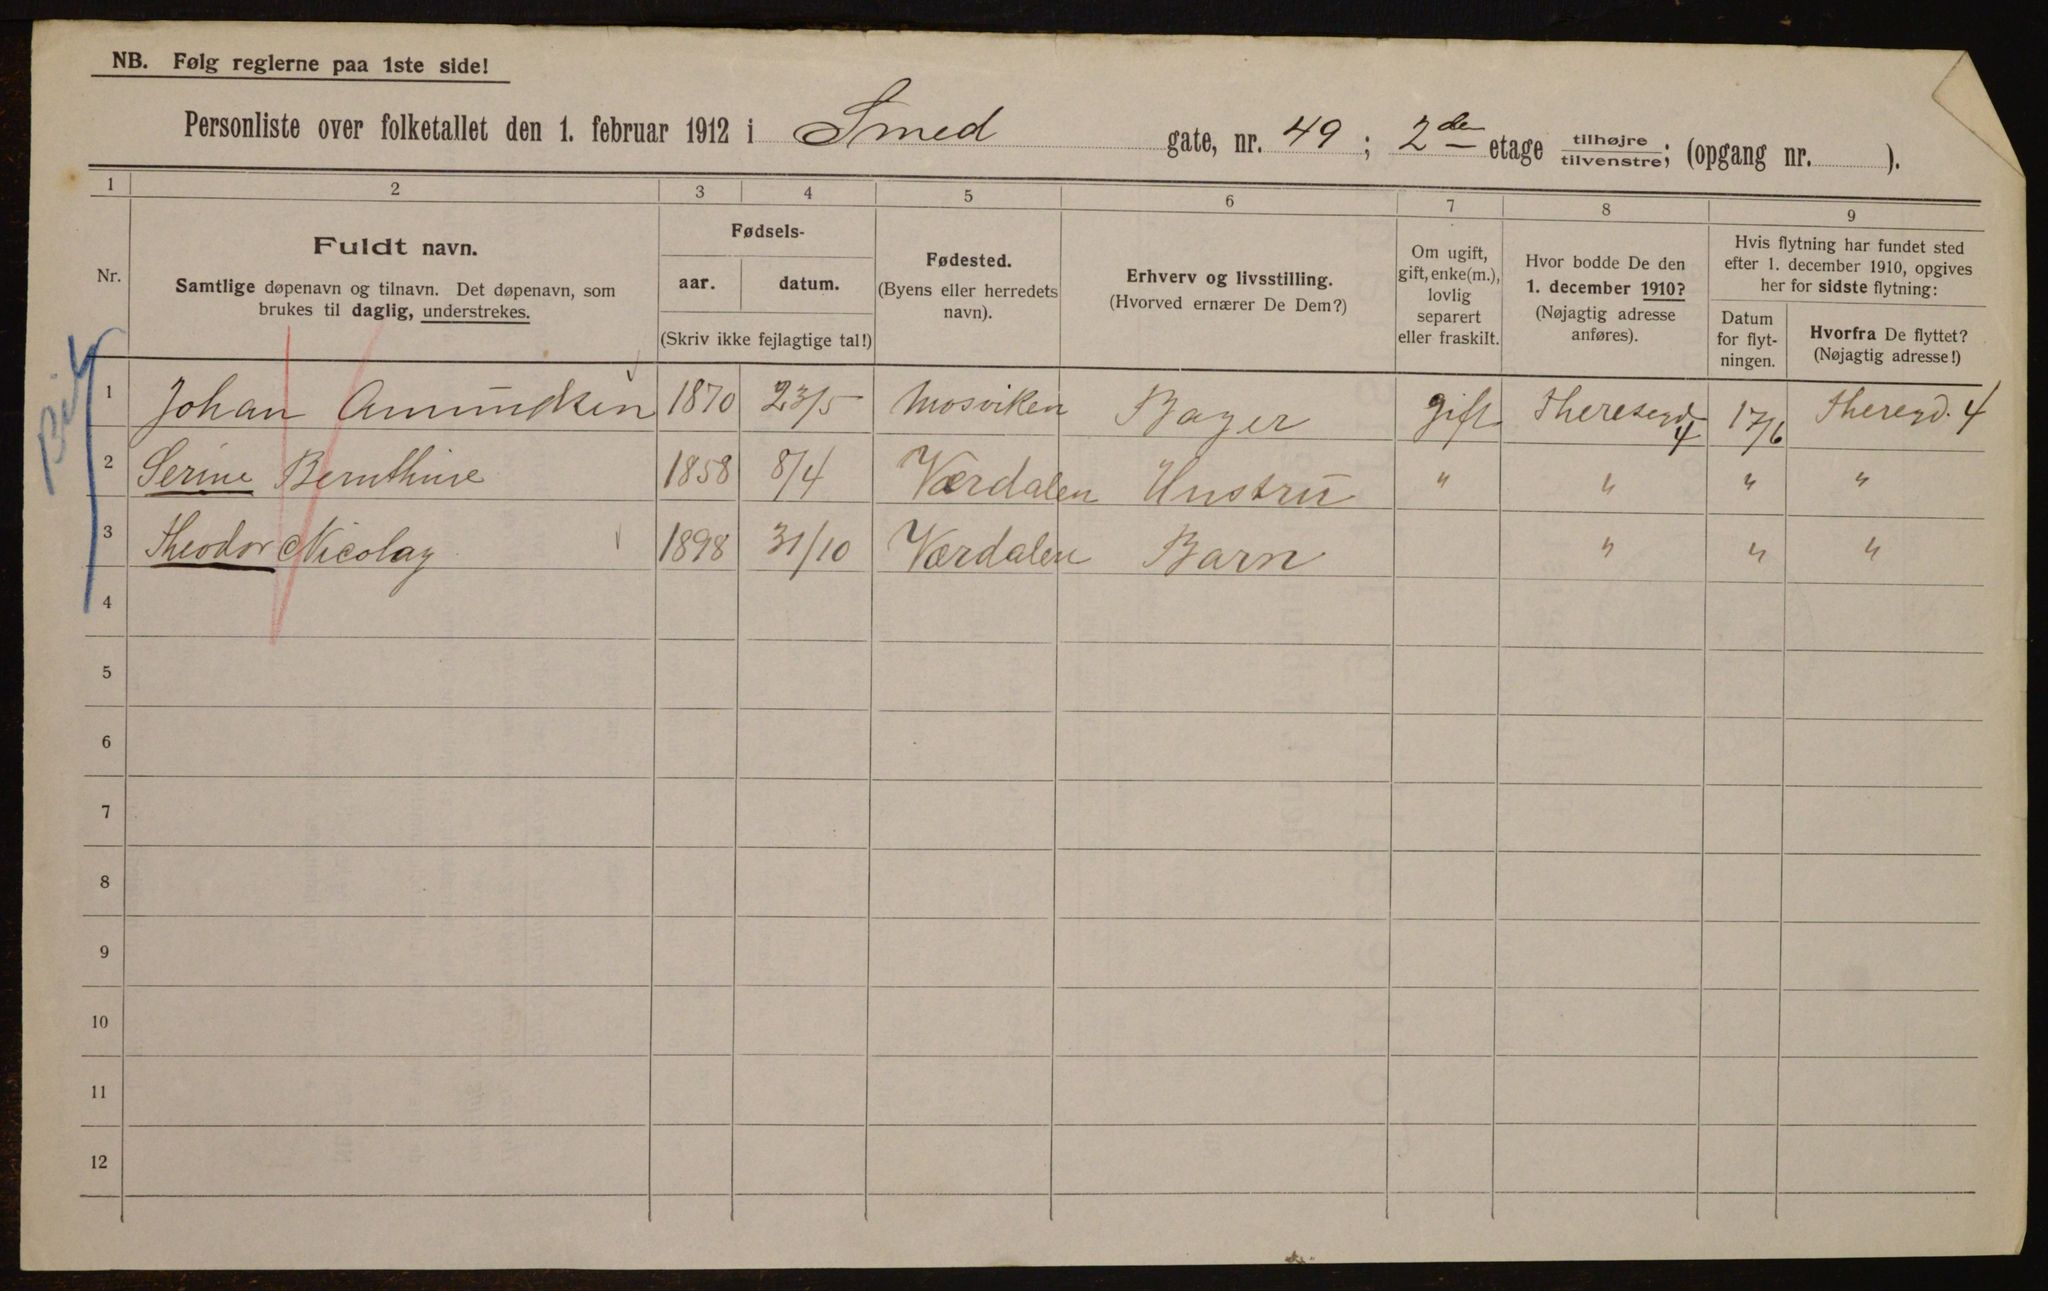 NB. Følg reglerne paa 1ste side!
Personliste over folketallet den 1. februar 1912 i Smed gate, nr. 49; 2den etage tilhøjre/tilvenstre; (opgang nr. ).
1 2 3 4 5 6 7 8 9
Nr.
Fuldt navn.
Samtlige døpenavn og tilnavn. Det døpenavn, som
brukes til daglig, understrekes.
Fødsels-
aar. datum.
(Skriv ikke fejlagtige tal!)
Fødested.
(Byens eller herredets
navn).
Erhverv og livsstilling.
(Hvorved ernærer De Dem?)
Om ugift,
gift, enke(m.),
lovlig
separert
eller fraskilt.
Hvor bodde De den
1. december 1910?
(Nøjagtig adresse
anføres).
Hvis flytning har fundet sted
efter 1. december 1910, opgives
her for sidste flytning:
Datum
for flyt-
ningen.
Hvorfra De flyttet?
(Nøjagtig adresse!)
1 Johan Amundsen 1870 23/5 Mosviken Bager gift Theresegd. 4 17/6 Theregd. 4
2 Serine Bernthine 1858 8/4 Værdalen Hustru " " " "
3 Theodor Nicolay 1898 31/10 Værdalen Barn " " "
4
5
6
7
8
9
10
11
12